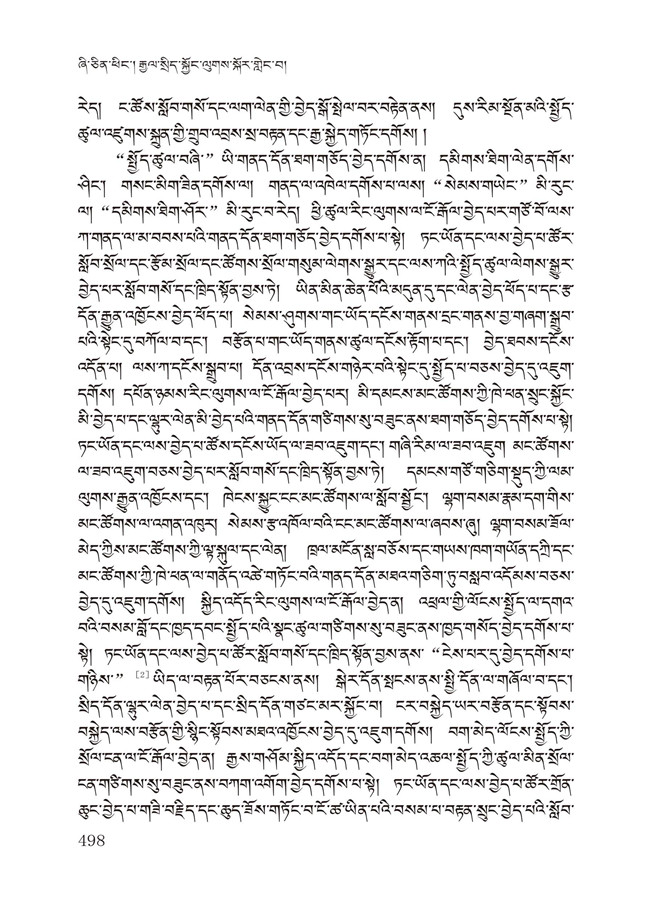 ཞི་ཅིན་ཕིང་། རྒྱལ་སྲིད་སྐྱོང་ལུགས་སྐོར་གླེང་བ།
རེད། ང་ཚོས་སློབ་གསོ་དང་ལག་ལེན་གྱི་བྱེད་སྒོ་སྤེལ་བར་བརྟེན་ནས། དུས་རིམ་སྔོན་མའི་སྤྱོད་
ཚུལ་འཛུགས་སྐྲུན་གྱི་གྲུབ་འབྲས་སྲ་བརྟན་དང་རྒྱ་སྐྱེད་གཏོང་དགོས། །
“སྤྱོད་ཚུལ་བཞི་” ཡི་གནད་དོན་ཐག་གཅོད་བྱེད་དགོས་ན། དམིགས་ཐིག་ལེན་དགོས་
ཤིང་། གསང་མིག་ཟིན་དགོས་ལ། གནད་ལ་འཁེལ་དགོས་པ་ལས། “སེམས་གཡེང་” མི་རུང་
ལ། “དམིགས་ཐིག་ཤོར་” མི་རུང་བ་རེད། ཕྱི་ཚུལ་རིང་ལུགས་ལ་ངོ་རྒོལ་བྱེད་པར་གཙོ་བོ་ལས་
ཀ་གནད་ལ་མ་བབས་པའི་གནད་དོན་ཐག་གཅོད་བྱེད་དགོས་པ་སྟེ། ཏང་ཡོན་དང་ལས་བྱེད་པ་ཚོར་
སློབ་སྲོལ་དང་རྩོམ་སྲོལ་དང་ཚོགས་སྲོལ་གསུམ་ལེགས་སྒྱུར་དང་ལས་ཀའི་སྤྱོད་ཚུལ་ལེགས་སྒྱུར་
བྱེད་པར་སློབ་གསོ་དང་ཁྲིད་སྟོན་བྱས་ཏེ། ཡིན་མིན་ཆེན་པོའི་མདུན་དུ་དང་ལེན་བྱེད་ཕོད་པ་དང་རྩ་
དོན་རྒྱུན་འཁྱོངས་བྱེད་ཕོད་པ། སེམས་ཤུགས་གང་ཡོད་དངོས་གནས་དྲང་གནས་བྱ་གཞག་སྒྲུབ་
པའི་སྟེང་དུ་བཀོལ་བ་དང་། བརྩོན་པ་གང་ཡོད་གནས་ཚུལ་དངོས་རྟོག་པ་དང་། བྱེད་ཐབས་དངོས་
འདོན་པ། ལས་ཀ་དངོས་སྒྲུབ་པ། དོན་འབྲས་དངོས་གཉེར་བའི་སྟེང་དུ་སྤྱོད་པ་བཅས་བྱེད་དུ་འཇུག་
དགོས། དཔོན་ཉམས་རིང་ལུགས་ལ་ངོ་རྒོལ་བྱེད་པར། མི་དམངས་མང་ཚོགས་ཀྱི་ཁེ་ཕན་སྲུང་སྐྱོང་
མི་བྱེད་པ་དང་ལྷུར་ལེན་མི་བྱེད་པའི་གནད་དོན་གཙོ་གསུ་བཟུང་ནས་ཐག་གཅོད་བྱེད་དགོས་པ་སྟེ།
ཏང་ཡོན་དང་ལས་བྱེད་པ་ཚོས་དངོས་ཡོད་ལ་ཟབ་འཇུག་དང་། གཞི་རིམ་ལ་ཟབ་འཇུག མང་ཚོགས་
ལ་ཟབ་འཇུག་བཅས་བྱེད་པར་སློབ་གསོ་དང་ཁྲིད་སྟོན་བྱས་ཏེ། དམངས་གཙོ་གཅིག་སྡུད་ཀྱི་ལམ་
ལུགས་རྒྱུན་འཁྱོངས་དང་། ཁེངས་སྐྱུང་ངང་མང་ཚོགས་ལ་སློབ་སྦྱོང་། ལྷག་བསམ་རྣམ་དག་གིས་
མང་ཚོགས་ལ་འགན་འཁུར། སེམས་རྩ་འཁོལ་བའི་ངང་མང་ཚོགས་ལ་ཞབས་ཞུ། ལྷག་བསམ་ཟོལ་
མེད་ཀྱིས་མང་ཚོགས་ཀྱི་ལྟ་སྐུལ་དང་ལེན། ཁྲལ་མངོན་སླ་བཅོས་དང་གཡས་ཁག་གཡོན་དཀྲི་དང་
མང་ཚོགས་ཀྱི་ཁེ་ཕན་ལ་གནོད་འཚེ་གཏོང་བའི་གནད་དོན་མཐའ་གཅིག་ཏུ་བསླབ་འདོམས་བཅས་
བྱེད་དུ་འཇུག་དགོས། སྐྱིད་འདོད་རིང་ལུགས་ལ་ངོ་རྒོལ་བྱེད་ན། འཕྲལ་གྱི་ལོངས་སྤྱོད་ལ་དགའ་
བའི་བསམ་བློ་དང་ཁྱད་དབང་སྤྱོད་པའི་སྣང་ཚུལ་གཙོ་གསུ་བཟུང་ནས་ཁྱད་གསོད་བྱེད་དགོས་པ་
སྟེ། ཏང་ཡོན་དང་ལས་བྱེད་པ་ཚོར་སློབ་གསོ་དང་ཁྲིད་སྟོན་བྱས་ནས་ “ངེས་པར་དུ་བྱེད་དགོས་པ་
གཉིས་” [2] ཡིད་ལ་བརྟན་པོར་བཅངས་ནས། སྒེར་དོན་སྤངས་ནས་སྤྱི་དོན་ལ་གཞོལ་བ་དང་།
སྲིད་དོན་ལྷུར་ལེན་བྱེད་པ་དང་སྲིད་དོན་གཙང་མར་སྐྱོང་བ། ངར་བསྐྱེད་ཡར་བརྩོན་དང་སྟོབས་
བསྐྱེད་ལས་བརྩོན་གྱི་སྙིང་སྟོབས་མཐའ་འཁྱོངས་བྱེད་དུ་འཇུག་དགོས། བག་མེད་ལོངས་སྤྱོད་ཀྱི་
སྲོལ་ངན་ལ་ངོ་རྒོལ་བྱེད་ན། རྒྱས་གཤོམ་སྐྱིད་འདོད་དང་བག་མེད་འཆལ་སྤྱོད་ཀྱི་ཚུལ་མིན་སྲོལ་
ངན་གཙོ་གསུ་བཟུང་ནས་བཀག་འགོག་བྱེད་དགོས་པ་སྟེ། ཏང་ཡོན་དང་ལས་བྱེད་པ་ཚོར་གྲོན་
ཆུང་བྱེད་པ་གཟི་བརྗིད་དང་ཆུད་ཟོས་གཏོང་བ་ངོ་ཚ་ཡིན་པའི་བསམ་པ་བརྟན་སྲུང་བྱེད་པའི་སློབ་
498